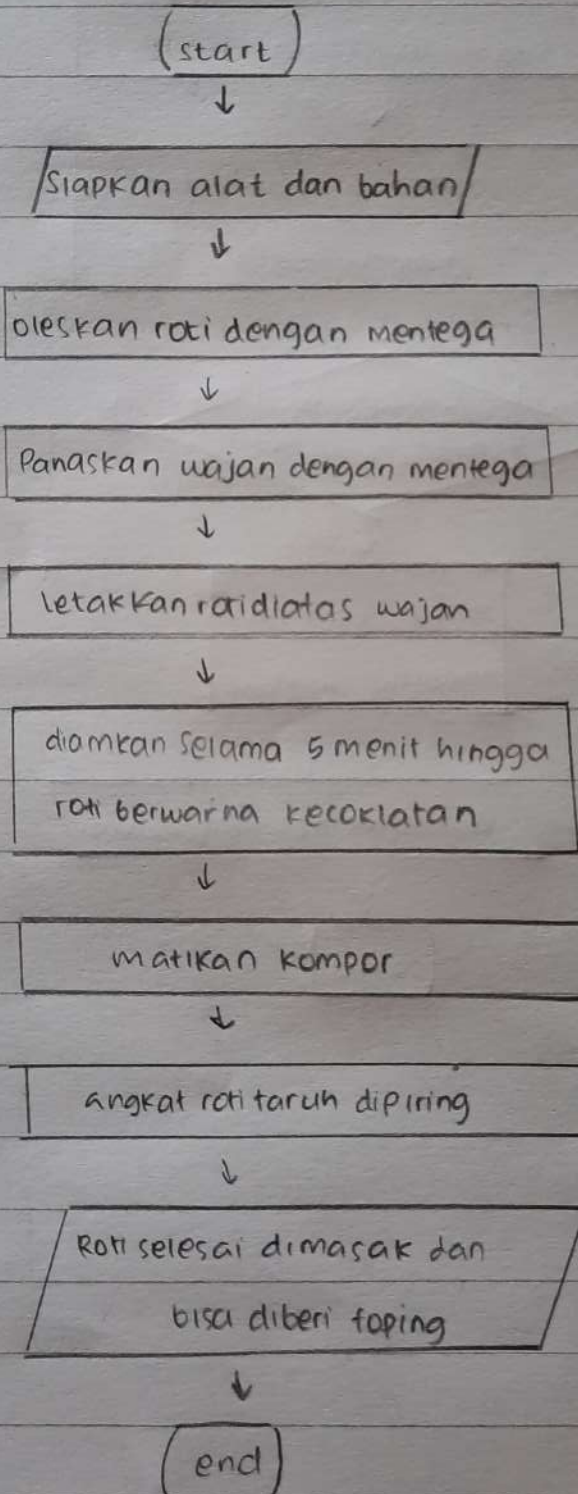 start
siapkan alat dan bahan
oleskan roti dengan mentega
Panaskan wajan dengan mentega
letakkan roti diatas wajan
diamkan selama 5 menit hingga
roti berwarna kecoklatan
matikan kompor
angkat roti taruh dipiring
Roti selesai dimasak dan
bisa diberi toping
end